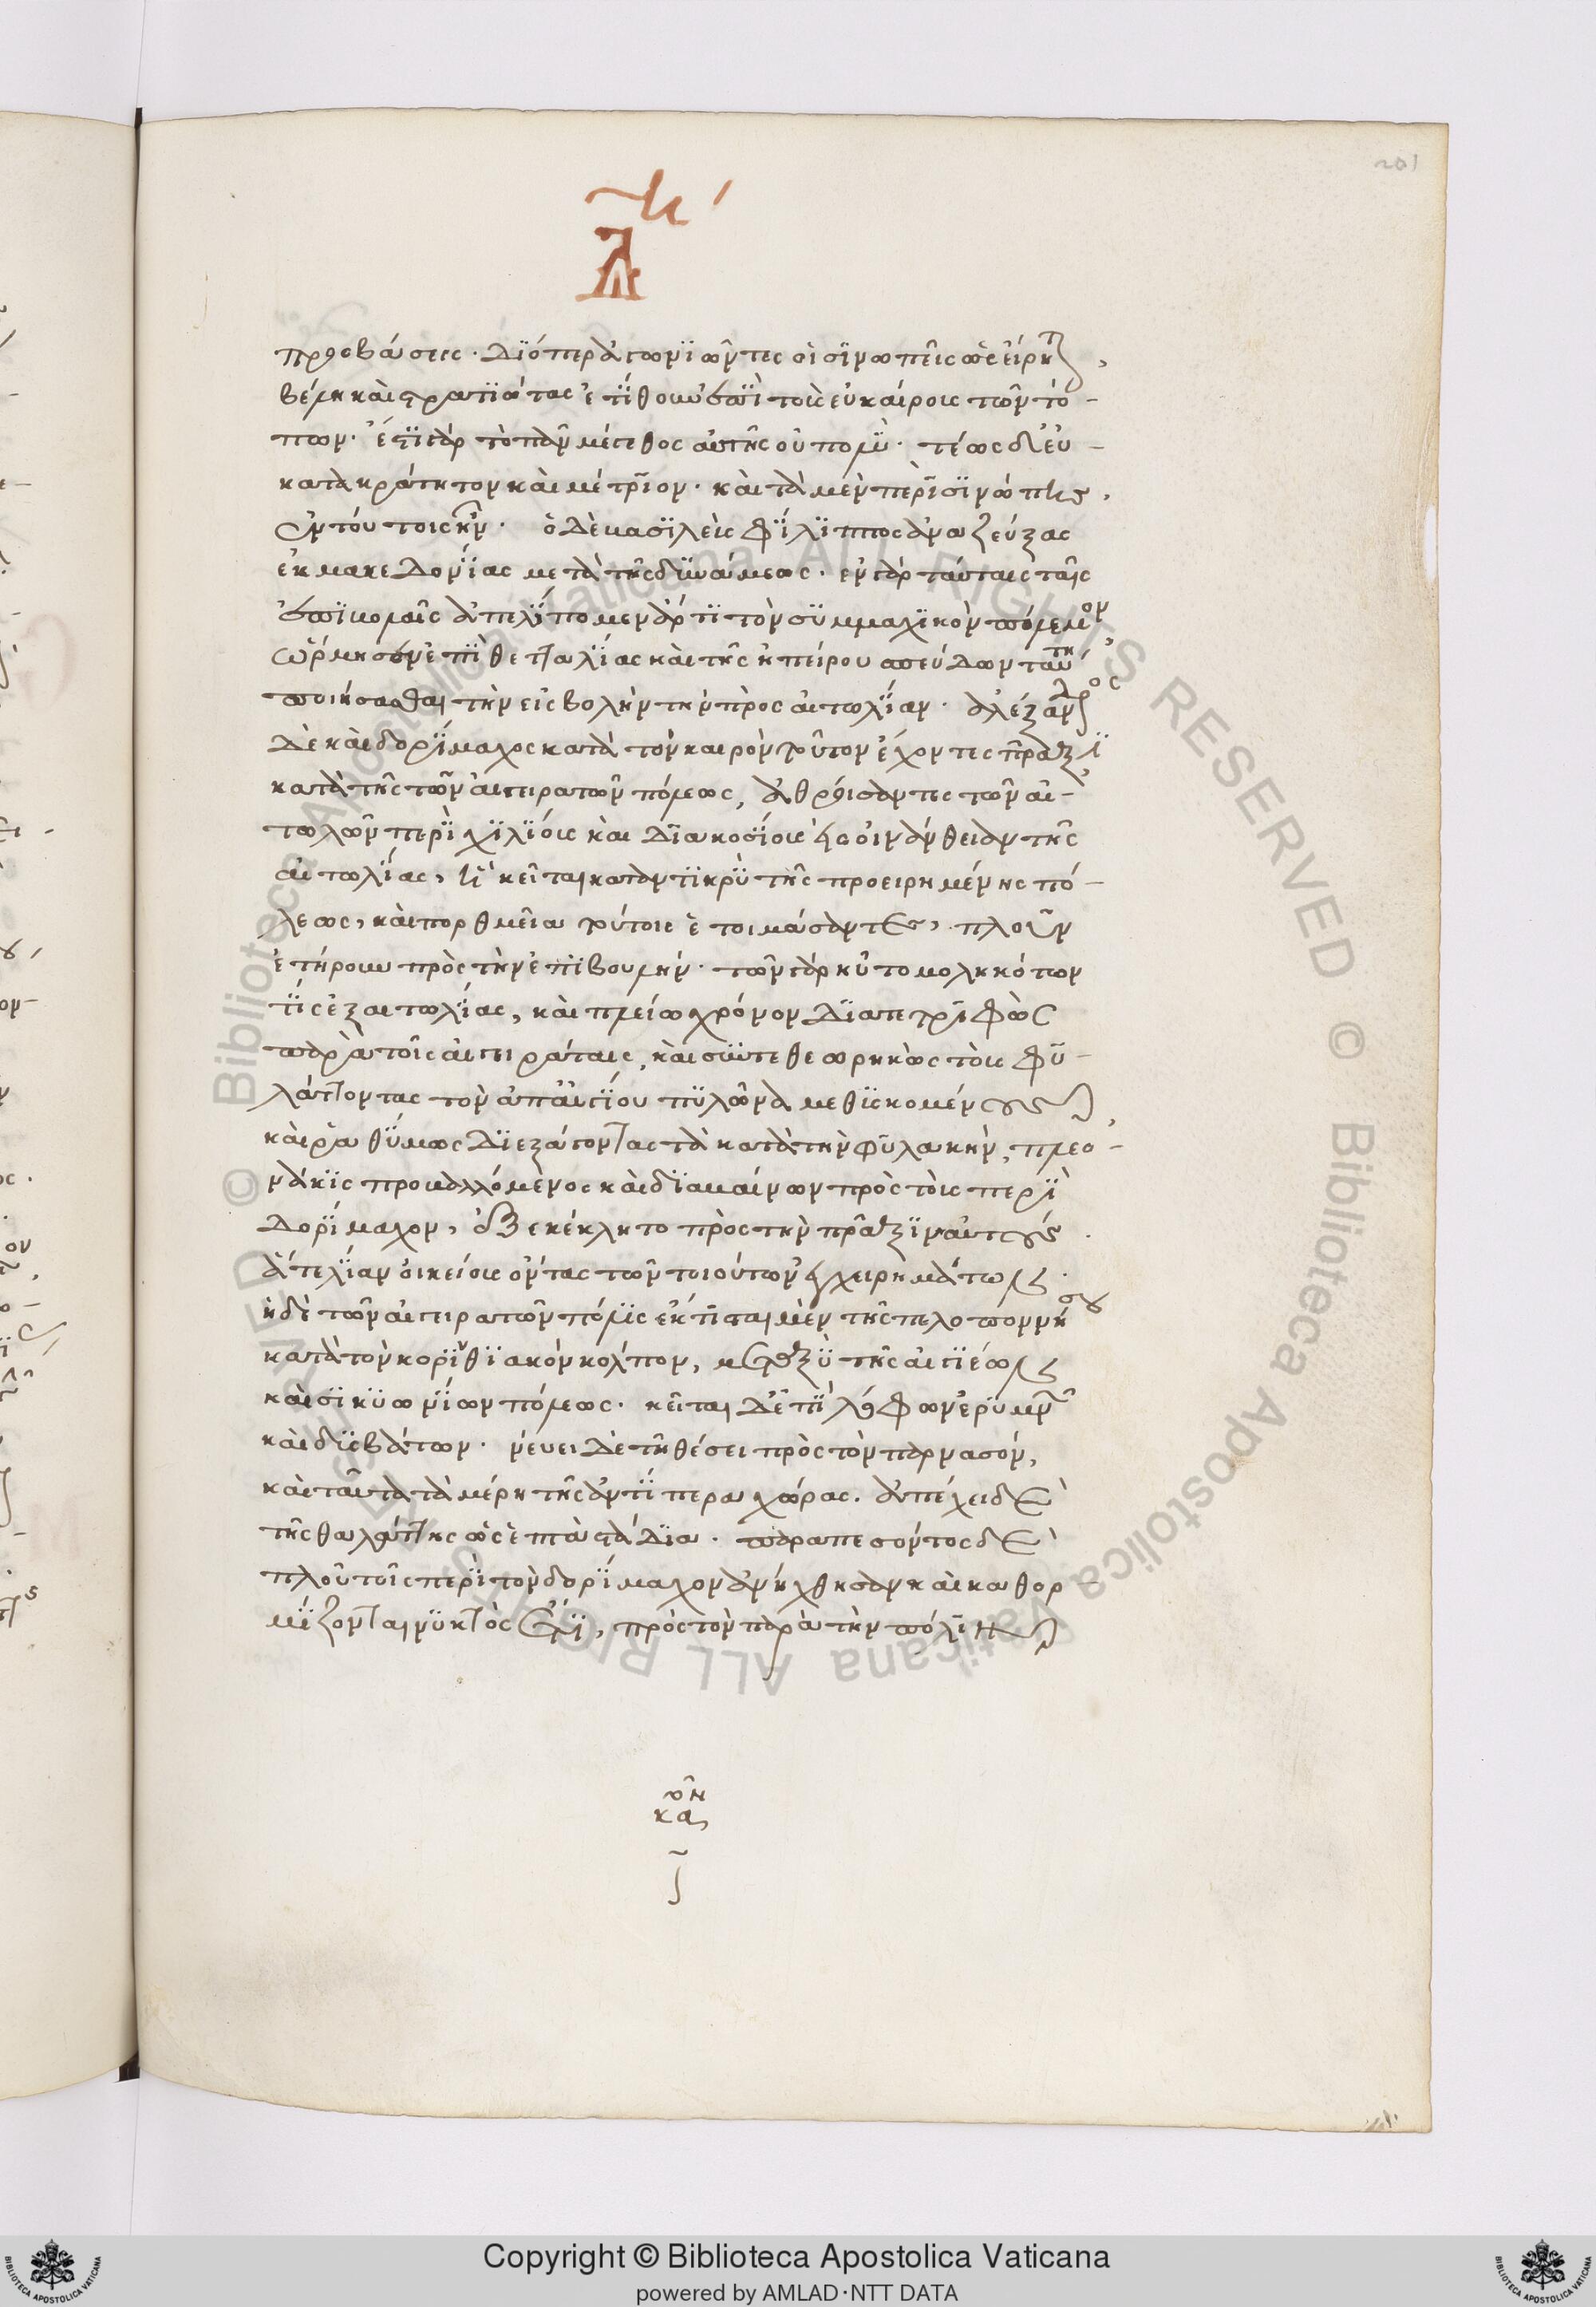 201
προσβάσεις. διόπερ ἀγωνιῶντες οἱ σινωπεῖς ὡς εἴρηται,
βέλη καὶ στρατιώτας ἐτίθουν ἐπὶ τοὺς εὐκαίρους τῶν τό-
πων. ἔστι γὰρ τὸ πᾶν μέγεθος αὐτῆς οὐ πολύ. τέως δ' εὐ-
κατακράτητον καὶ μέτριον. καὶ τὰ μὲν περὶ σινώπης,
ἐν τούτοις ἦν. ὁ δὲ βασιλεὺς φίλιππος ἀναζεύξας
ἐκ μακεδονίας μετὰ τῆς δυνάμεως. ἐν γὰρ ταύταις ταῖς
ἐπιβολαῖς ἀπελίπομεν ἄρτι τὸν συμμαχικὸν πόλεμον,
ὥρμησεν ἐπὶ θετταλίας καὶ τῆς ἠπείρου σπεύδων ταύτῃ
ποιήσασθαι τὴν εἰσβολὴν τὴν πρὸς αἰτωλίαν. ἀλέξανδρος
δὲ καὶ δορίμαχος κατὰ τὸν καιρὸν τοῦτον ἔχοντες πρᾶξιν
κατὰ τῆς τῶν αἰγειρατῶν πόλεως, ἀθροίσαντες τῶν αἰ-
τωλῶν περὶ χιλίους καὶ διακοσίους εἰς οἰνάνθειαν τῆς
αἰτωλίας, ἣ κεῖται καταντικρὺ τῆς προειρημένης πό-
λεως, καὶ πορθμεῖα τούτοις ἑτοιμάσαντες, πλοῦν
ἐτήρουν πρὸς τὴν ἐπιβουλήν. τῶν γὰρ ηὐτομοληκότων
τὶς ἐξ αἰτωλίας, καὶ πλείω χρόνον διατετριφὼς
παρὰ τοῖς αἰγειράταις, καὶ συντεθεωρηκὼς τοὺς φυ-
λάττοντας τὸν ἀπ' αἰγίου πυλῶνα μεθυσκομένους,
καὶ ῥαθύμως διεξάγοντας τὰ κατὰ τὴν φυλακὴν, πλεο-
νάκις προβαλλόμενος καὶ διαβαίνων πρὸς τοὺς περὶ
δορίμαχον, ἐξεκέκλητο πρὸς τὴν πρᾶξιν αὐτούς.
ἅτε λίαν οἰκείους ὄντας τῶν τοιούτων ἐγχειρημάτων.
ἡ δὲ τῶν αἰγειρατῶν πόλις ἔκτισται μὲν τῆς πελοποννήσου
κατὰ τὸν κορινθιακὸν κόλπον, μεταξὺ τῆς αἰγιέων
καὶ σικυωνίων πόλεως. κεῖται δ' ἐπὶ λόφων ἐρυμνῶν
καὶ δυσβάτων. νεύει δὲ τῇ θέσει πρὸς τὸν παρνασόν,
καὶ ταῦτα τὰ μέρη τῆς ἀντίπερα χώρας. ἀπέχει δὲ
τῆς θαλάττης ὡς ἑπτὰ στάδια. παραπεσόντος δὲ
πλοῦ τοῖς περὶ τὸν δορίμαχον ἀνήχθησαν καὶ καθορ-
μίζονται νυκτὸς ἔτι, πρὸς τὸν παρὰ τὴν πόλιν
Copyright © Biblioteca Apostolica Vaticana
powered by AMLAD·NTT DATA